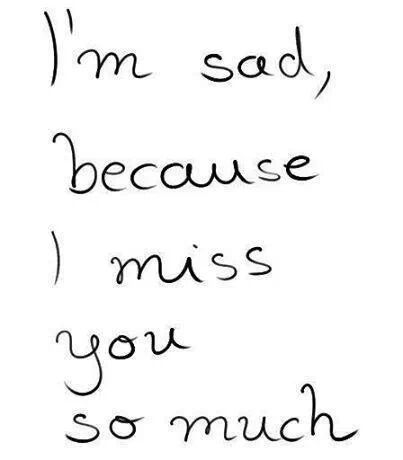 I'm sad,
because
I miss
you
so much